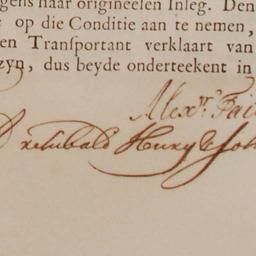 gens haar origineelen Inleg. Den
op die Conditie aan te nemen,
en Transportant verklaart van
zyn, dus beyde onderteekent in
Alexr. Fai
Archibald Henry & Joh